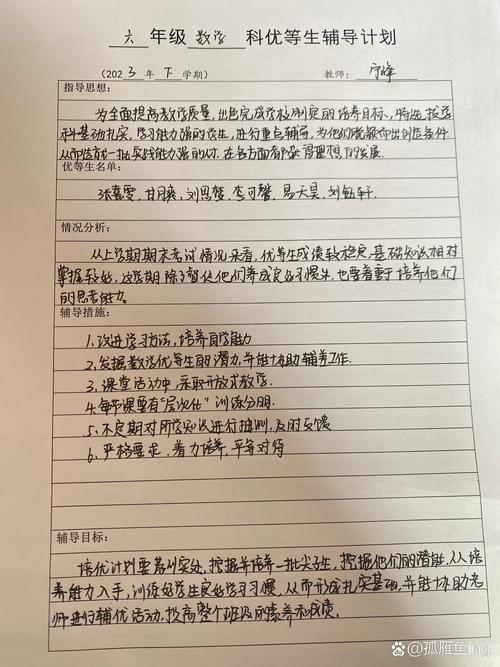 六 年级 数学 科优等生辅导计划
(2023年 下 学期) 教师: 宁峰
指导思想:
为全面提高教学质量,出色完成学校制定的培养目标,特选拔学
科基础扎实、学习能力强的学生,进行重点辅导,为他们脱颖而出创造条件
从而造就一批实践能力强的人才,在各方面都获得理想的发展.
优等生名单:
张嘉雯,甘月爽,刘思楚,李可馨,易天昊,刘钰轩
情况分析:
从上学期期末考试情况来看,优等生成绩较稳定,基础知识相对
掌握较好,这学期除了督促他们养成良好习惯外,也要着重于培养他们
的思考能力。
辅导措施:
1、改进学习方法,培养自学能力
2、发掘数学优等生的潜力,并能协助辅养工作.
3、课堂活动中,采取开放式教学.
4、每节课要有“层次化”训练分明.
5、不定期对所学知识进行抽测,及时反馈
6、严格要求,着力培养,平等对待
辅导目标:
培优计划要落到实处,挖掘并培养一批尖子生,挖掘他们的潜能,从培
养能力入手,训练好学生良好学习习惯,从而形成扎实基础,并能协助老
师进行辅优活动,提高整个班级的素养和成绩。
@孤雁鱼ing